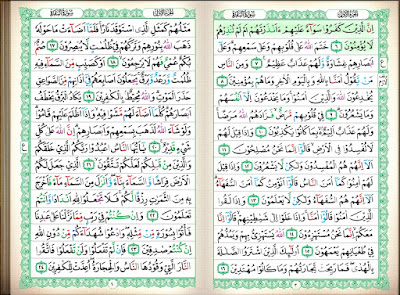 سُورَةُ البَقَرَةِ
إِنَّ الَّذِينَ كَفَرُوا سَوَاءٌ عَلَيْهِمْ ءَأَنذَرْتَهُمْ أَمْ لَمْ تُنذِرْهُمْ
لَا يُؤْمِنُونَ ٦ خَتَمَ اللَّهُ عَلَىٰ قُلُوبِهِمْ وَعَلَىٰ سَمْعِهِمْ وَعَلَىٰ
أَبْصَارِهِمْ غِشَاوَةٌ وَلَهُمْ عَذَابٌ عَظِيمٌ ٧ وَمِنَ النَّاسِ
مَن يَقُولُ آمَنَّا بِاللَّهِ وَبِالْيَوْمِ الْآخِرِ وَمَا هُم بِمُؤْمِنِينَ ٨
يُخَادِعُونَ اللَّهَ وَالَّذِينَ آمَنُوا وَمَا يَخْدَعُونَ إِلَّا أَنفُسَهُمْ
وَمَا يَشْعُرُونَ ٩ فِي قُلُوبِهِم مَّرَضٌ فَزَادَهُمُ اللَّهُ مَرَضًا
وَلَهُمْ عَذَابٌ أَلِيمٌ بِمَا كَانُوا يَكْذِبُونَ ١٠ وَإِذَا قِيلَ لَهُمْ
لَا تُفْسِدُوا فِي الْأَرْضِ قَالُوا إِنَّمَا نَحْنُ مُصْلِحُونَ ١١
أَلَا إِنَّهُمْ هُمُ الْمُفْسِدُونَ وَلَٰكِن لَّا يَشْعُرُونَ ١٢ وَإِذَا قِيلَ
لَهُمْ آمِنُوا كَمَا آمَنَ النَّاسُ قَالُوا أَنُؤْمِنُ كَمَا آمَنَ السُّفَهَاءُ
أَلَا إِنَّهُمْ هُمُ السُّفَهَاءُ وَلَٰكِن لَّا يَعْلَمُونَ ١٣ وَإِذَا لَقُوا
الَّذِينَ آمَنُوا قَالُوا آمَنَّا وَإِذَا خَلَوْا إِلَىٰ شَيَاطِينِهِمْ قَالُوا إِنَّا
مَعَكُمْ إِنَّمَا نَحْنُ مُسْتَهْزِءُونَ ١٤ اللَّهُ يَسْتَهْزِئُ بِهِمْ وَيَمُدُّهُمْ
فِي طُغْيَانِهِمْ يَعْمَهُونَ ١٥ أُولَٰئِكَ الَّذِينَ اشْتَرَوُا الضَّلَالَةَ
بِالْهُدَىٰ فَمَا رَبِحَت تِّجَارَتُهُمْ وَمَا كَانُوا مُهْتَدِينَ ١٦
سُورَةُ البَقَرَةِ
مَثَلُهُمْ كَمَثَلِ الَّذِي اسْتَوْقَدَ نَارًا فَلَمَّا أَضَاءَتْ مَا حَوْلَهُ
ذَهَبَ اللَّهُ بِنُورِهِمْ وَتَرَكَهُمْ فِي ظُلُمَاتٍ لَّا يُبْصِرُونَ ١٧
صُمٌّ بُكْمٌ عُمْيٌ فَهُمْ لَا يَرْجِعُونَ ١٨ أَوْ كَصَيِّبٍ مِّنَ السَّمَاءِ فِيهِ
ظُلُمَاتٌ وَرَعْدٌ وَبَرْقٌ يَجْعَلُونَ أَصَابِعَهُمْ فِي آذَانِهِم مِّنَ الصَّوَاعِقِ
حَذَرَ الْمَوْتِ وَاللَّهُ مُحِيطٌ بِالْكَافِرِينَ ١٩ يَكَادُ الْبَرْقُ يَخْطَفُ
أَبْصَارَهُمْ كُلَّمَا أَضَاءَ لَهُم مَّشَوْا فِيهِ وَإِذَا أَظْلَمَ عَلَيْهِمْ قَامُوا
وَلَوْ شَاءَ اللَّهُ لَذَهَبَ بِسَمْعِهِمْ وَأَبْصَارِهِمْ إِنَّ اللَّهَ عَلَىٰ كُلِّ
شَيْءٍ قَدِيرٌ ٢٠ يَا أَيُّهَا النَّاسُ اعْبُدُوا رَبَّكُمُ الَّذِي خَلَقَكُمْ
وَالَّذِينَ مِن قَبْلِكُمْ لَعَلَّكُمْ تَتَّقُونَ ٢١ الَّذِي جَعَلَ لَكُمُ
الْأَرْضَ فِرَاشًا وَالسَّمَاءَ بِنَاءً وَأَنزَلَ مِنَ السَّمَاءِ مَاءً فَأَخْرَجَ
بِهِ مِنَ الثَّمَرَاتِ رِزْقًا لَّكُمْ فَلَا تَجْعَلُوا لِلَّهِ أَندَادًا وَأَنتُمْ
تَعْلَمُونَ ٢٢ وَإِن كُنتُمْ فِي رَيْبٍ مِّمَّا نَزَّلْنَا عَلَىٰ عَبْدِنَا
فَأْتُوا بِسُورَةٍ مِّن مِّثْلِهِ وَادْعُوا شُهَدَاءَكُم مِّن دُونِ اللَّهِ
إِن كُنتُمْ صَادِقِينَ ٢٣ فَإِن لَّمْ تَفْعَلُوا وَلَن تَفْعَلُوا فَاتَّقُوا
النَّارَ الَّتِي وَقُودُهَا النَّاسُ وَالْحِجَارَةُ أُعِدَّتْ لِلْكَافِرِينَ ٢٤